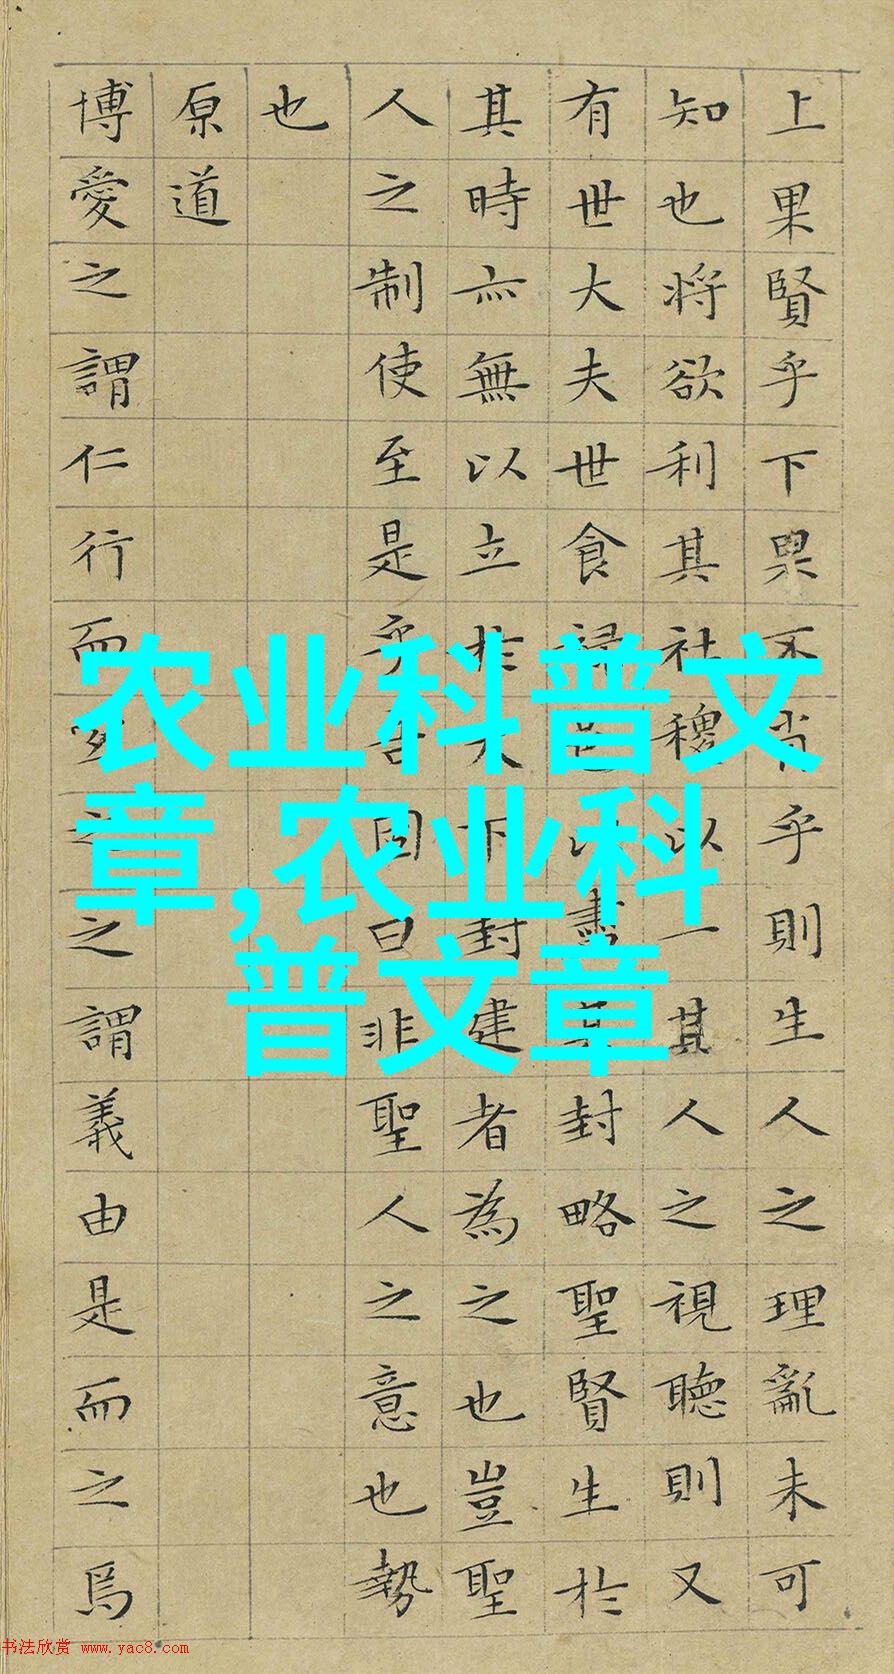 上果賢乎下果不肖乎則生人之理亂未可
知也将欲利其社稷以一其人之視聽則又
有世大夫世食祿邑以盡其封略聖賢生於
其時亦無以立於天下封建者為之也豈聖
人之制使至是乎吾固曰非聖人之意也勢
也
原道
博愛之謂仁行而宜之之謂義由是而之焉
农业科普文
章,农业科
普文章
书法欣赏 www.yac8.com